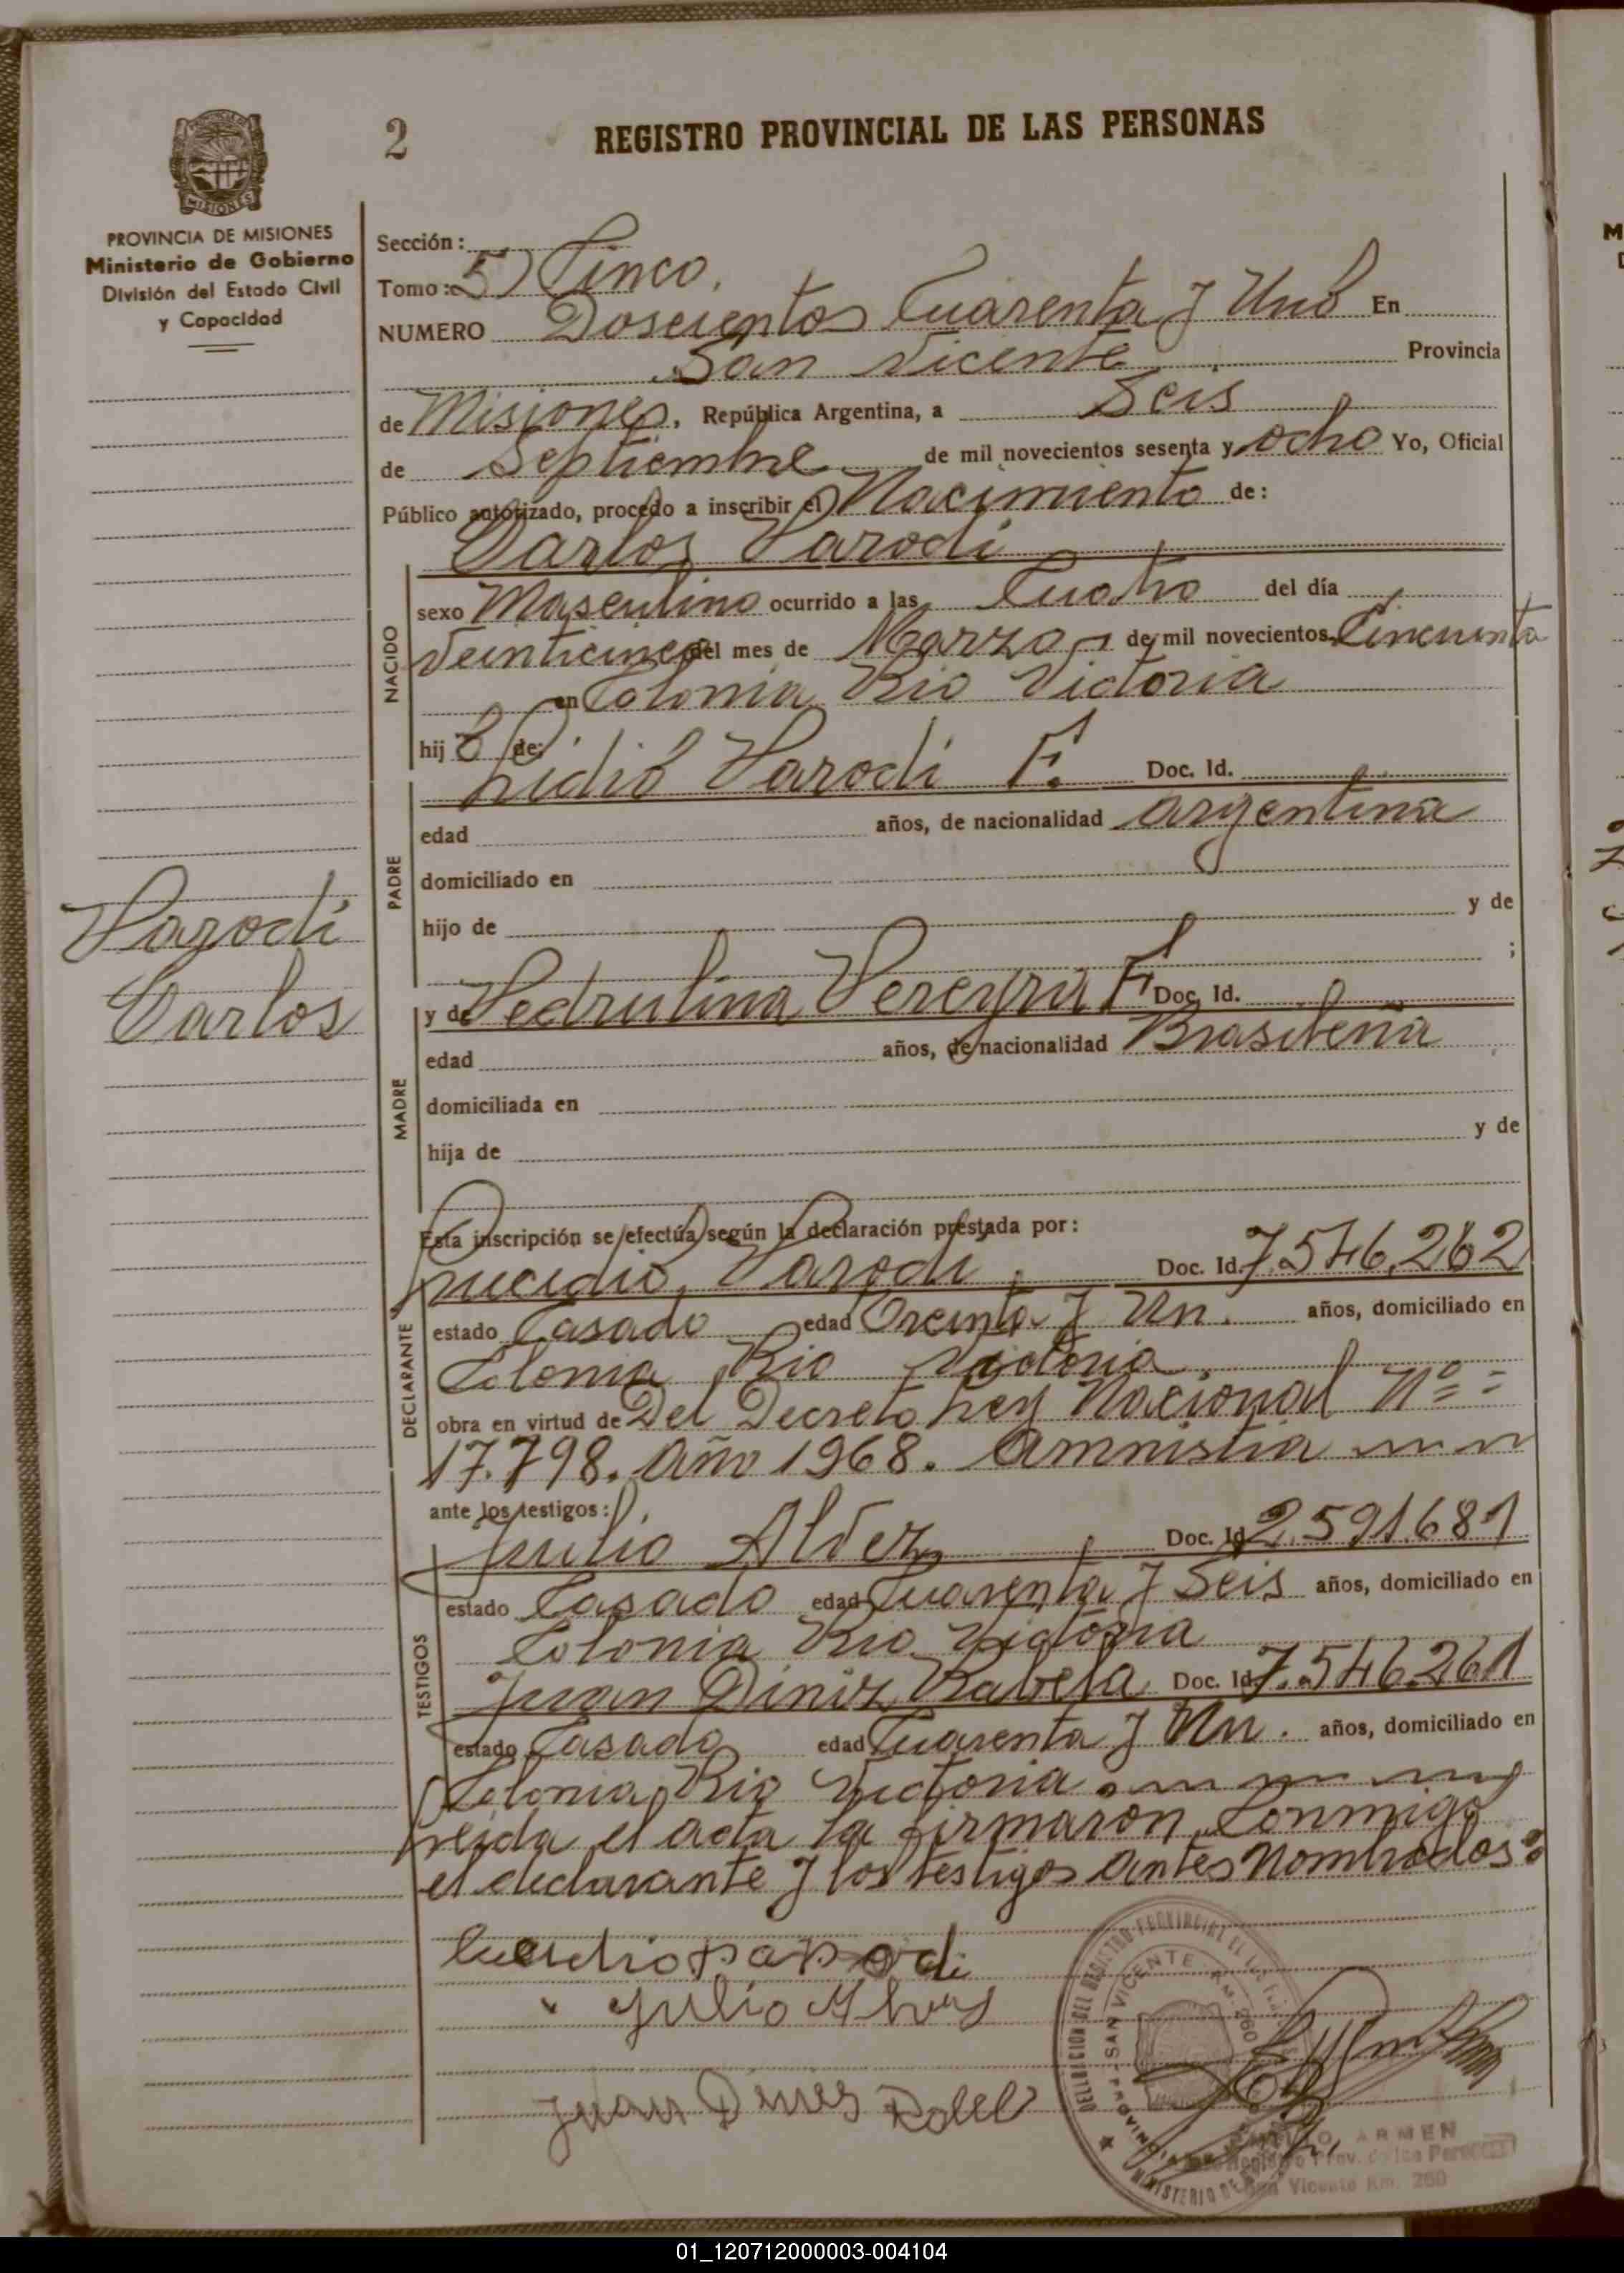 2
REGISTRO PROVINCIAL DE LAS PERSONAS
MISIONES
PROVINCIA DE MISIONES
Ministerio de Gobierno
División del Estado Civil
y Capacidad
Sección:
Tomo: 5) Cinco.
NUMERO Doscientos Cuarenta y Uno En
San Vicente Provincia
de Misiones, República Argentina, a Seis
de Septiembre de mil novecientos sesenta y ocho Yo, Oficial
Público autorizado, procedo a inscribir el Nacimiento de:
Carlos Parodi
NACIDO
sexo Masculino ocurrido a las Cuatro del día
Veinticinco del mes de Marzo de mil novecientos Cincuenta
en Colonia Rio Victoria
hij o de:
Lidio Parodi F. Doc. Id.
PADRE
edad años, de nacionalidad argentina
domiciliado en
hijo de y de
;
Parodi
Carlos
y de Pedrulina Pereyra F. Doc. Id.
MADRE
edad años, de nacionalidad Brasileña
domiciliada en
hija de y de
Esta inscripción se efectúa según la declaración prestada por:
Lucidio Parodi Doc. Id. 7.546.262
DECLARANTE
estado Casado edad Treinta y Un. años, domiciliado en
Colonia Rio Victoria
obra en virtud de Del Decreto Ley Nacional Nº =
17.798. Año 1968. Amnistia
ante los testigos:
Julio Alvez Doc. Id. 2.591.681
TESTIGOS
estado Casado edad Cuarenta y Seis años, domiciliado en
Colonia Rio Victoria
Juan Diniz Rabela Doc. Id. 7.546.261
estado Casado edad Cuarenta y Un. años, domiciliado en
Colonia Rio Victoria.
Leida el acta la firmaron Conmigo
el declarante y los testigos antes Nombrados:
Lucidio parodi
Julio Alves
Juan Dinis
SAN VICENTE Km 260
ARMEN
Registro Prov. de las Personas
San Vicente Km. 260
01_120712000003-004104